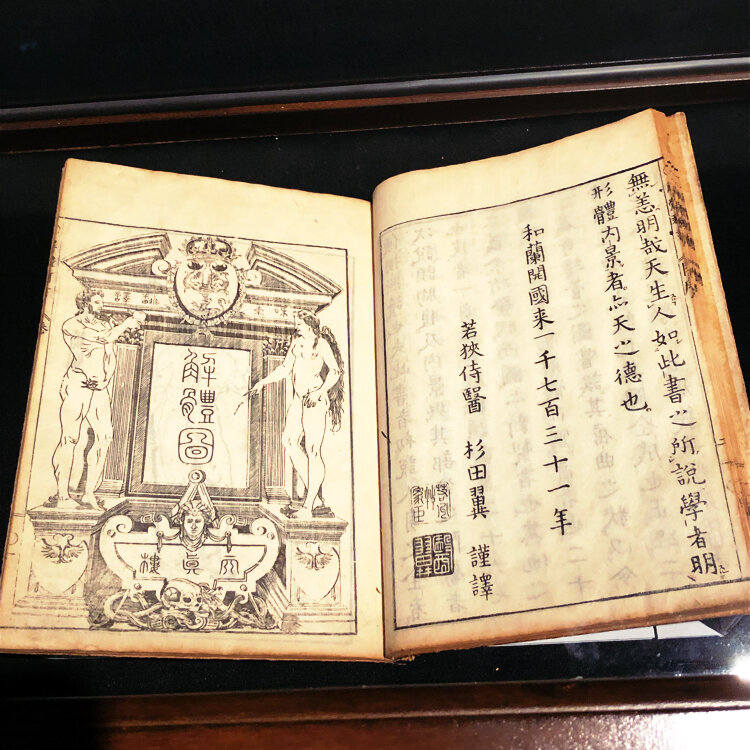 無恙明哉天生人如此書之所説學者明
形體内景者。亦天之德也。
和蘭開國来一千七百三十一年
若狹侍醫 杉田翼 謹譯
解體圖
天眞樓